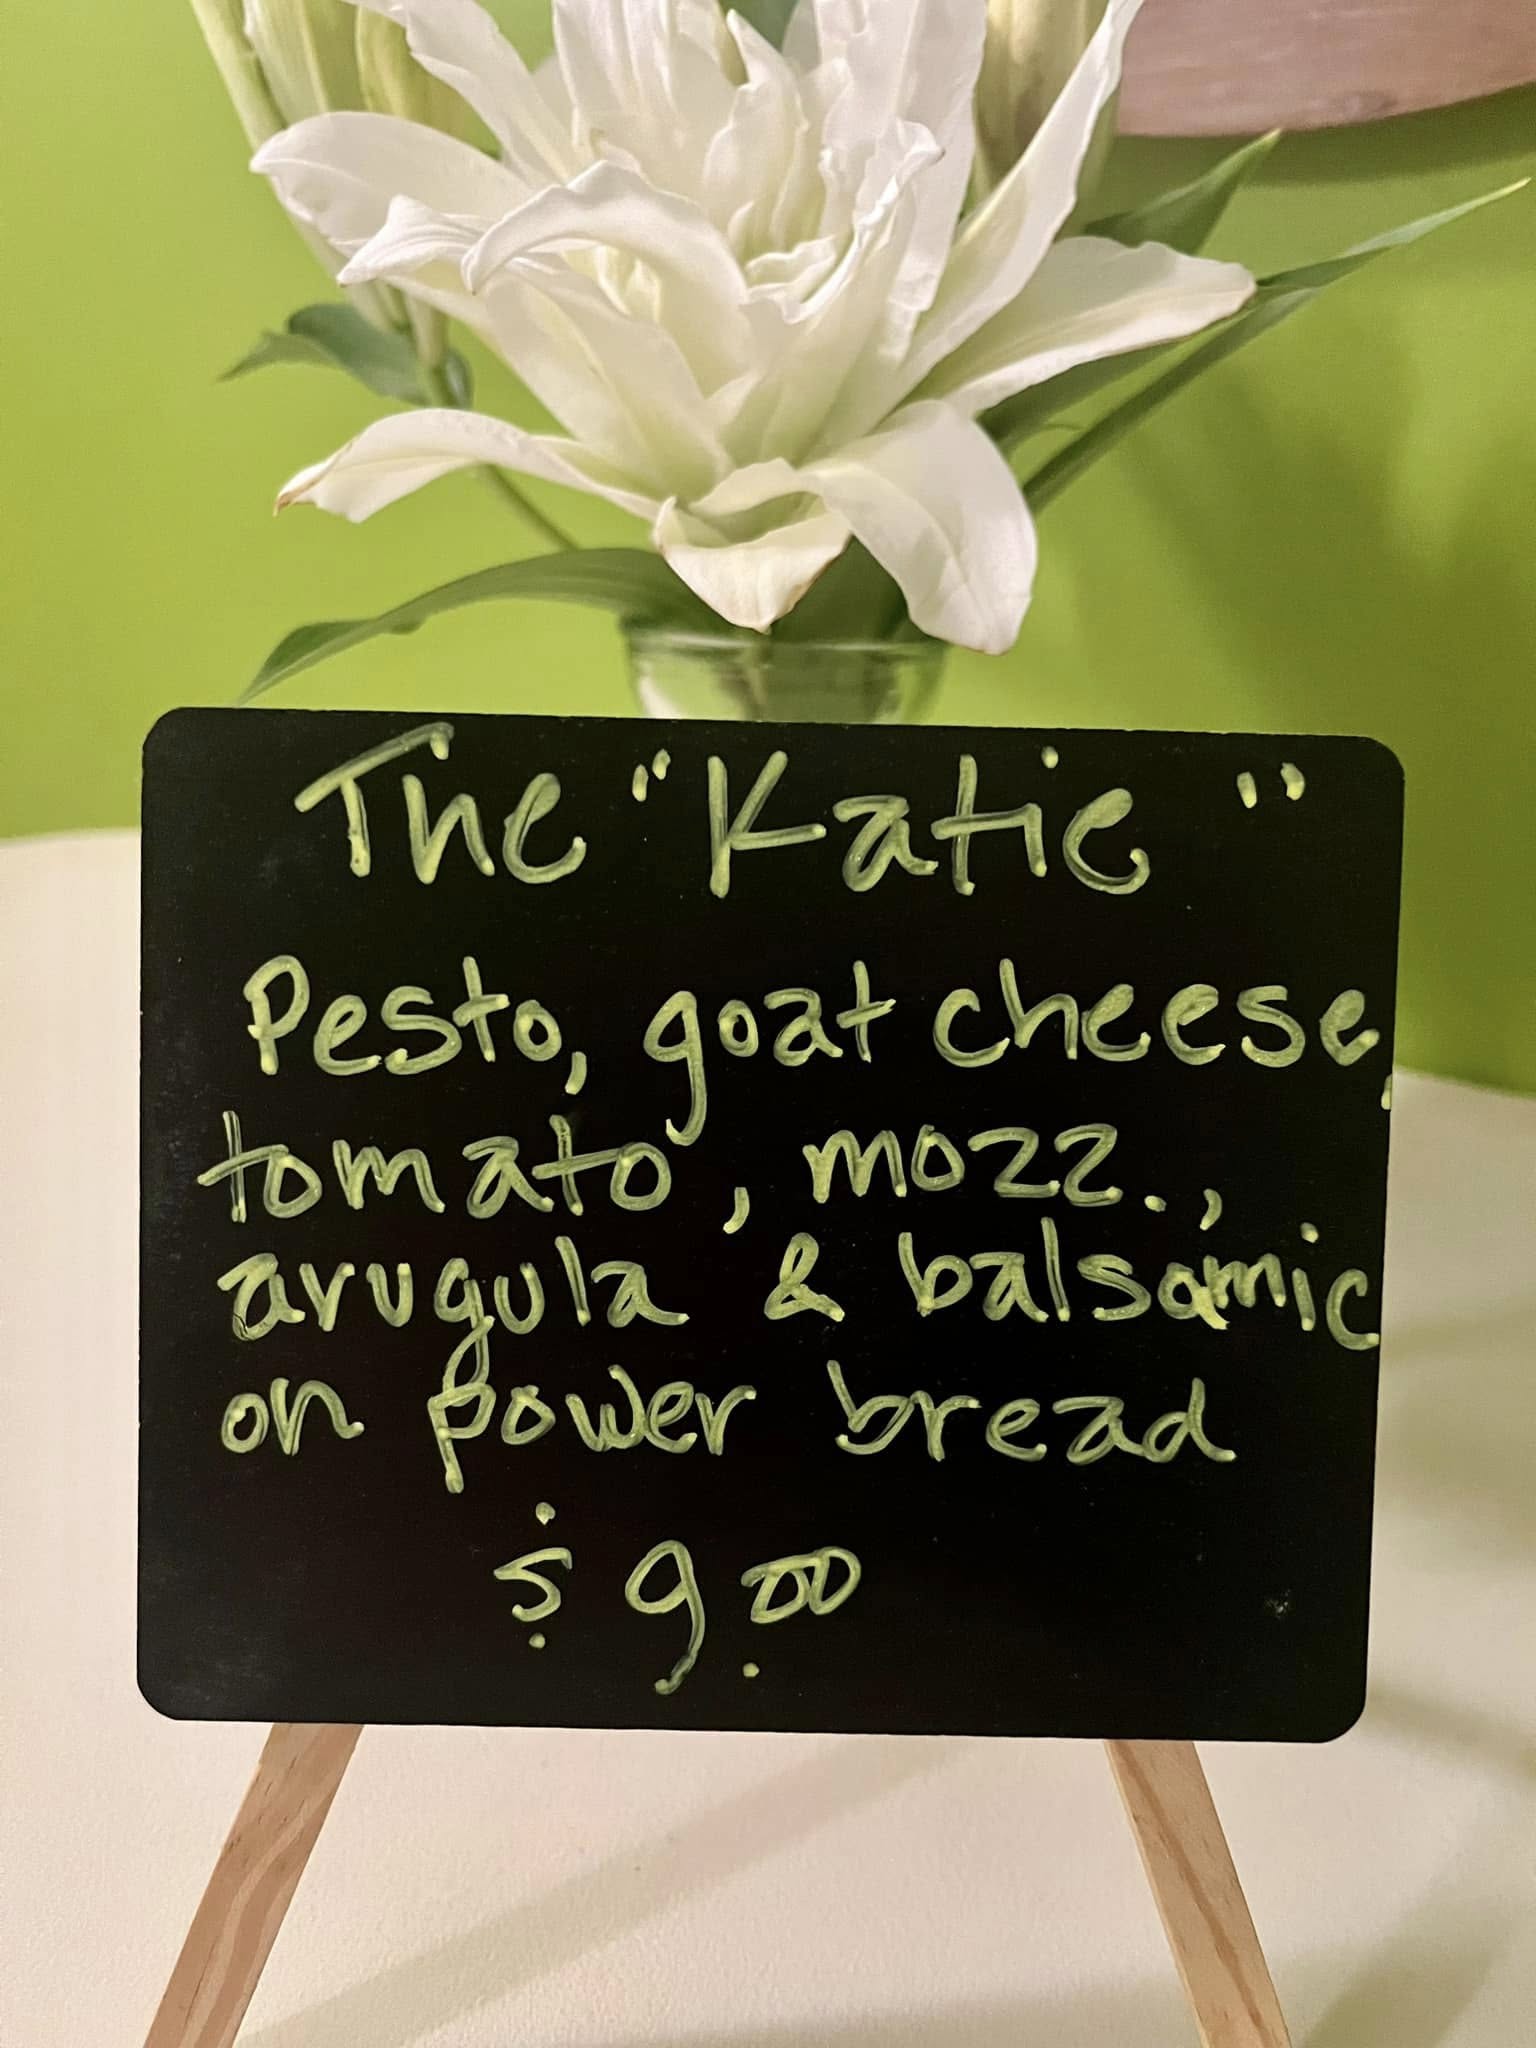 The "Katie"
Pesto, goat cheese,
tomato, mozz.,
arugula & balsamic
on power bread
$9.00